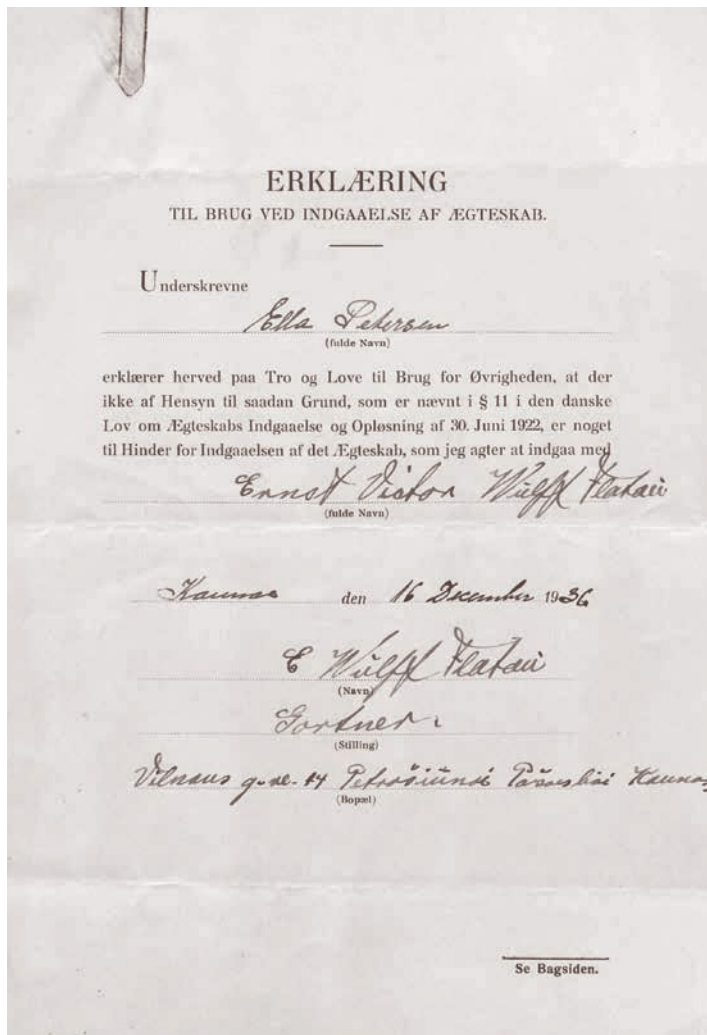 ERKLÆRING
TIL BRUG VED INDGAAELSE AF ÆGTESKAB.
Underskrevne
Ella Petersen
(fulde Navn)
erklærer herved paa Tro og Love til Brug for Øvrigheden, at der
ikke af Hensyn til saadan Grund, som er nævnt i § 11 i den danske
Lov om Ægteskabs Indgaaelse og Opløsning af 30. Juni 1922, er noget
til Hinder for Indgaaelsen af det Ægteskab, som jeg agter at indgaa med
Ernst Victor Wulff Flatau
(fulde Navn)
Kaunas den 16 December 1936
E Wulff Flatau
(Navn)
Gartner
(Stilling)
Vilnaus 14 Kaunas
(Bopæl)
Se Bagsiden.